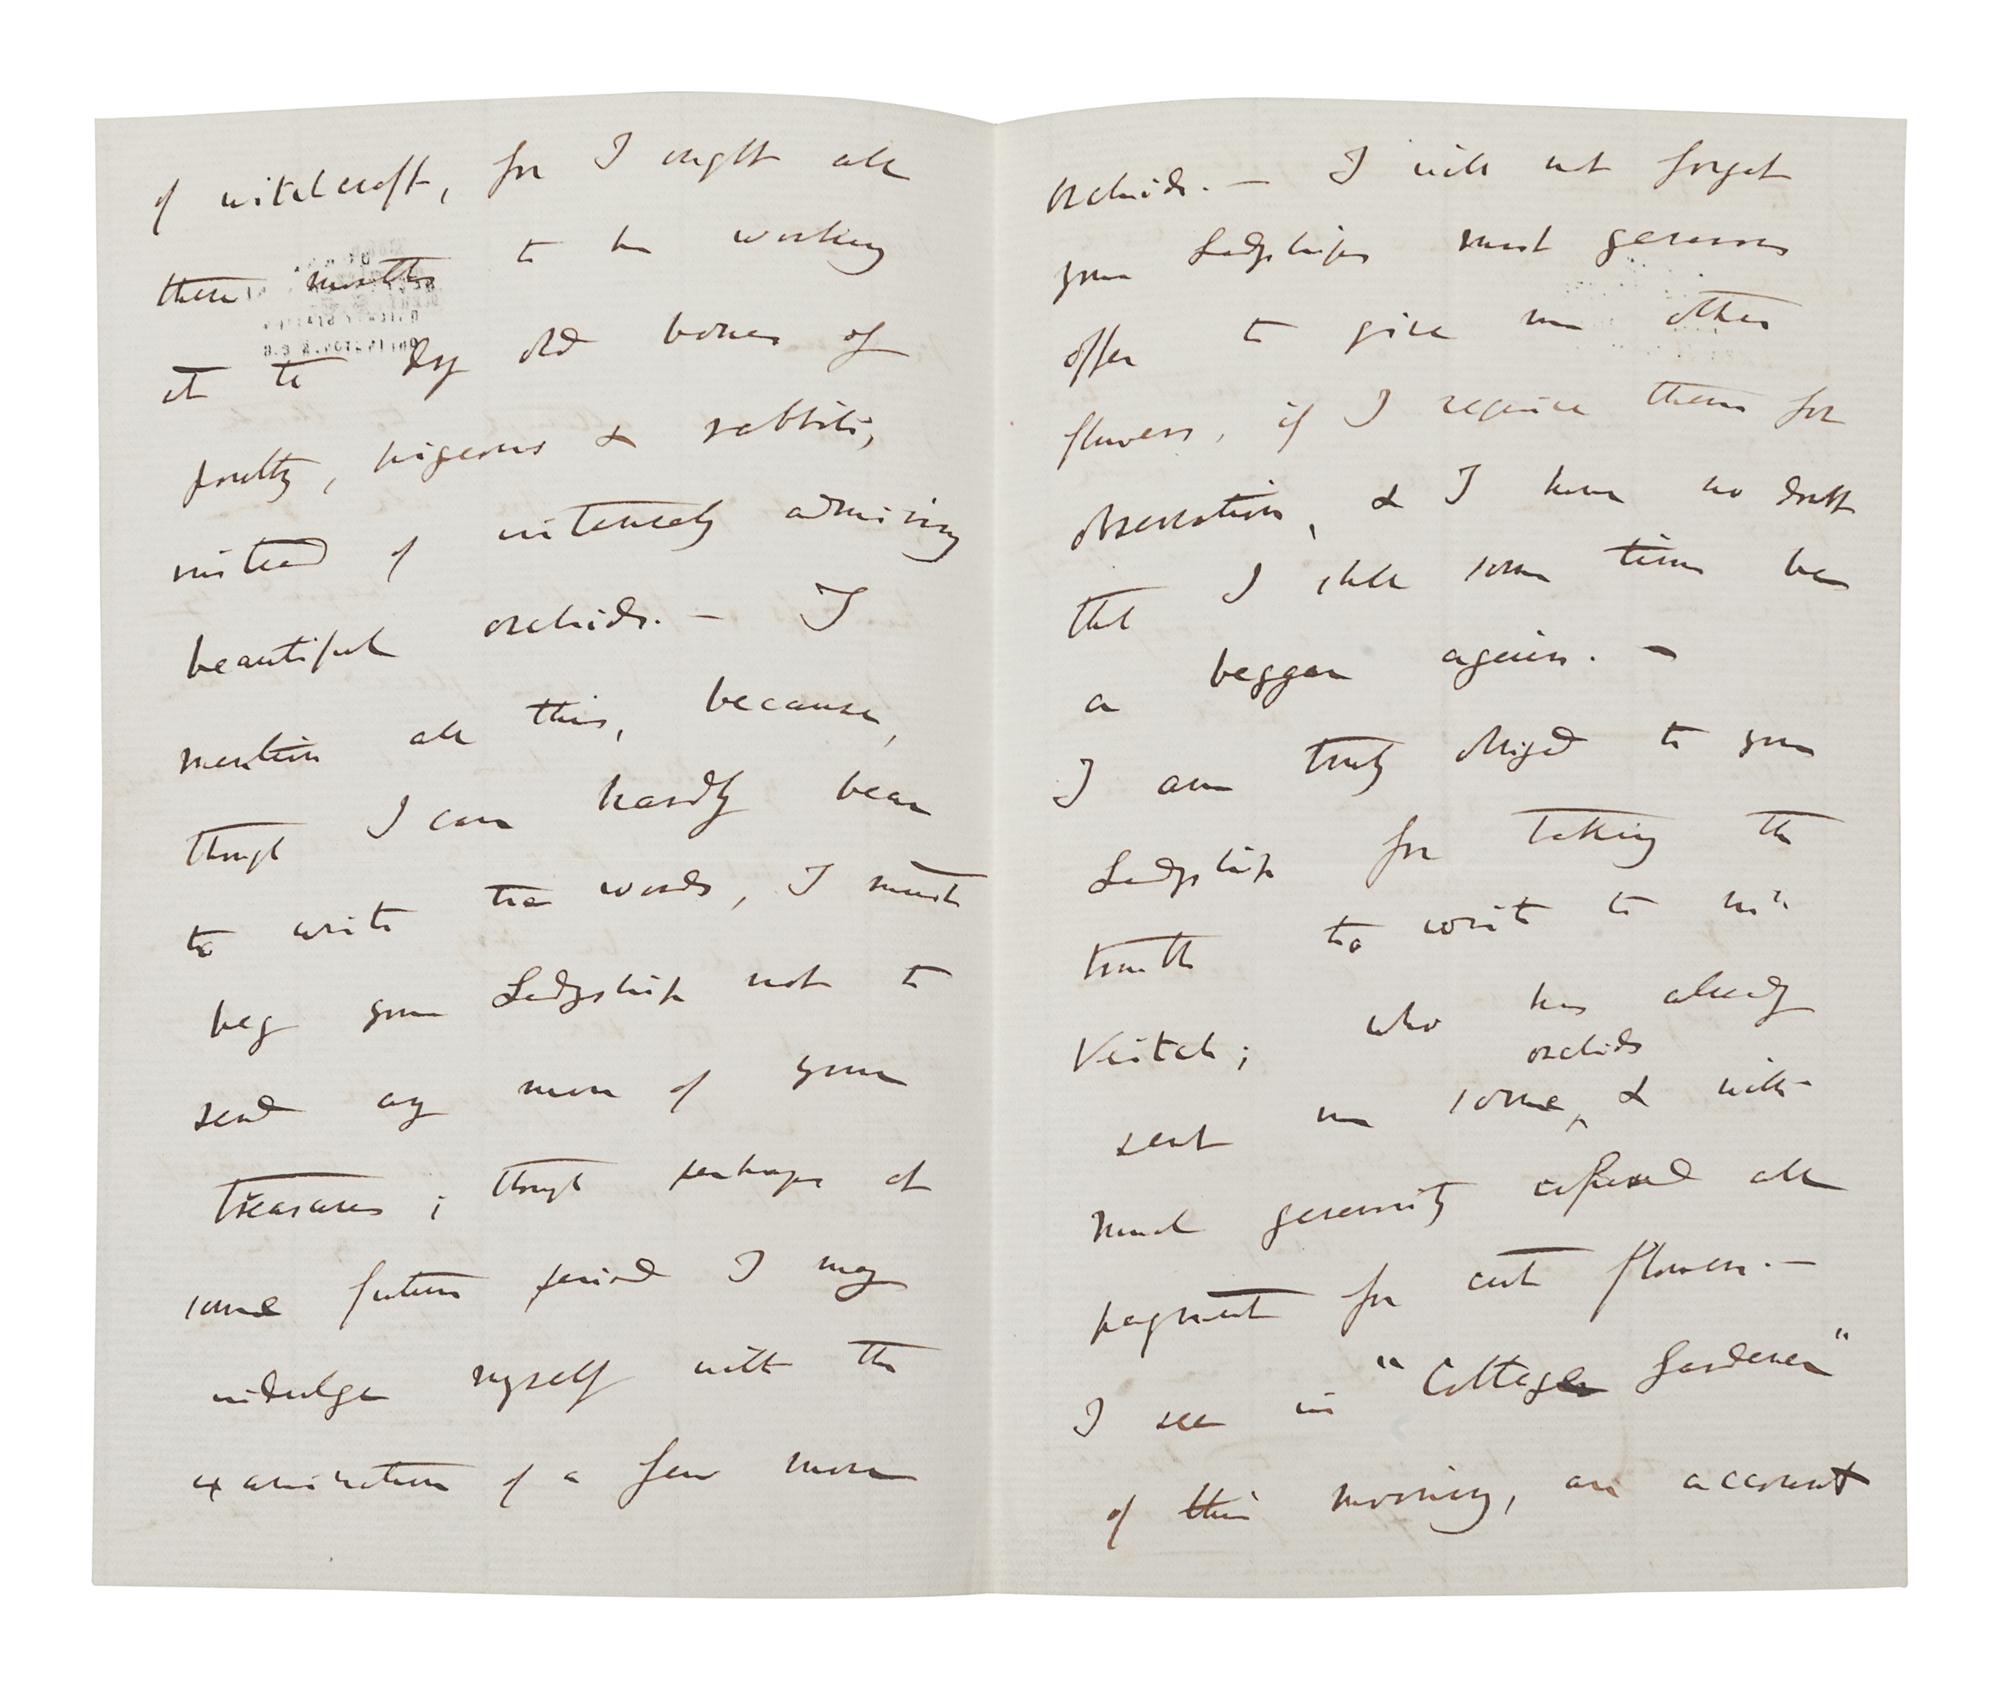 of witchcraft, for I ought all
these months to be working
at the dry old bones of
poultry, pigeons & rabbits,
instead of intensely admiring
beautiful orchids. — I
mention all this, because,
though I can hardly bear
to write the words, I must
beg your Ladyship not to
send any more of your
treasures; though perhaps at
some future period I may
indulge myself with the
examination of a few more
orchids. — I will not forget
your Ladyships most generous
offer to give me other
flowers, if I require them for
observation, & I have no doubt
that I shall some time be
a beggar again. —
I am truly obliged to your
Ladyship for taking the
trouble to write to Mr
Veitch; who has already
orchids
sent me some, & with
much generosity refused all
payment for cut flowers. —
I see in "Cottage Gardener"
of this morning, an account